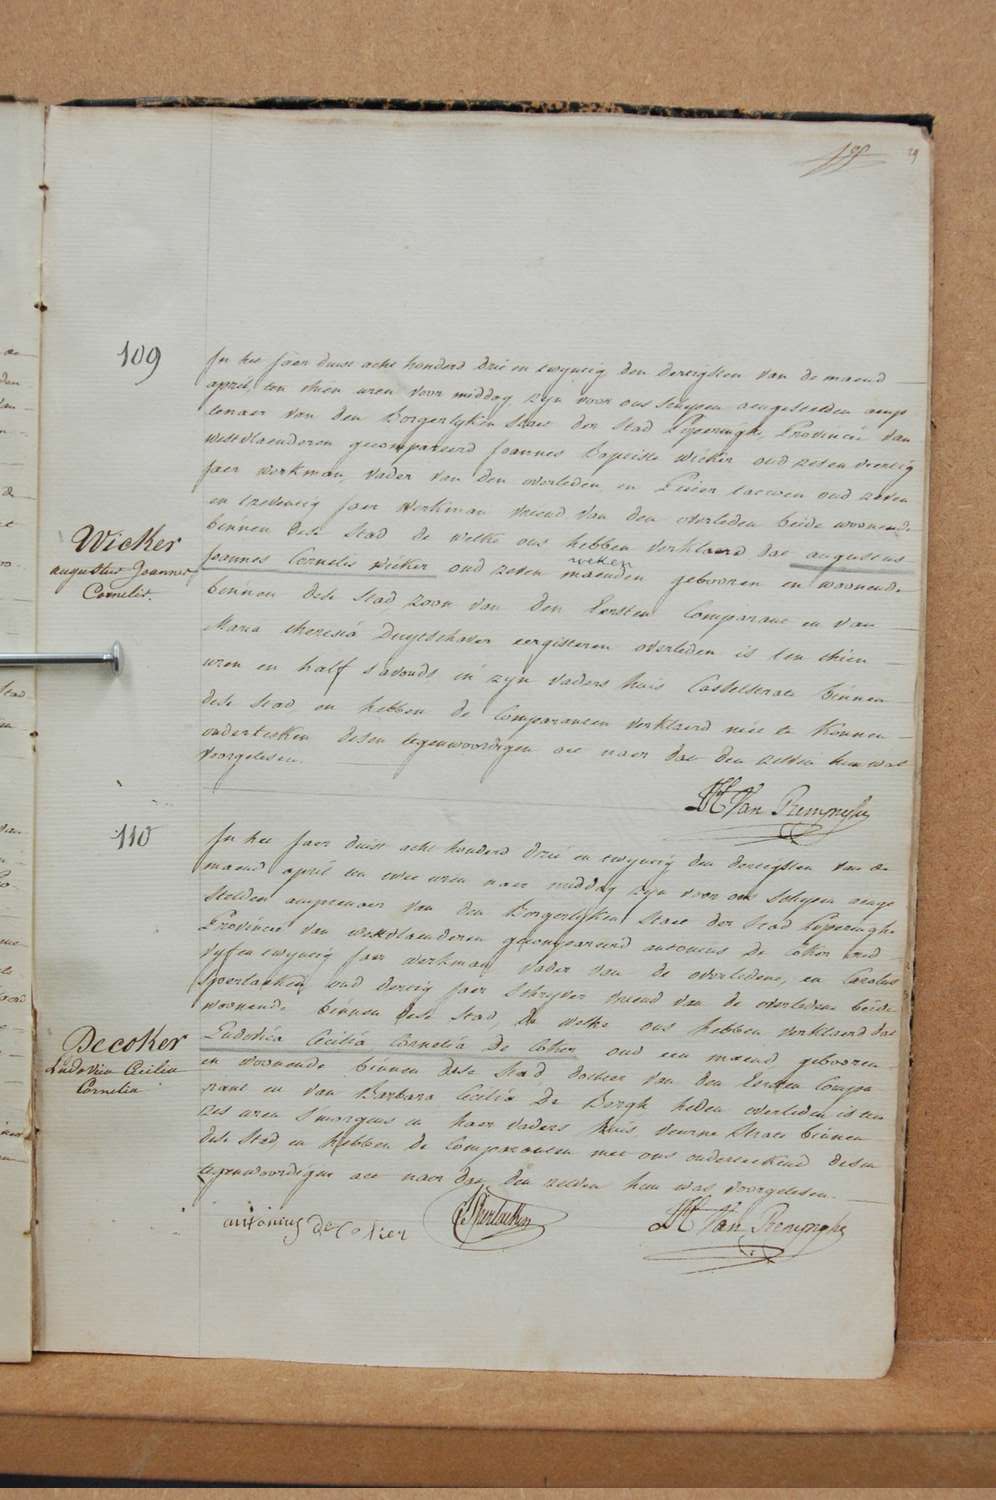 29
109
In het jaer duist acht honderd drie en twyntig den dertigsten van de maend
april, ten thien uren voor middag zyn voor ons schepen aengestelden amp
tenaer van den Borgerlyken staet der stad Poperinghe, Provincie van
westvlaenderen gecompareerd Joannes Baptiste Wicker oud zeven veertig
jaer werkman, vader van den overleden, en Pieter oud zeven
en jaer werkman vriend van den overleden beide woonende
Wicker
augustus Joannes
Cornelis.
binnen dese stad de welke ons hebben verklaerd dat augustus
Joannes Cornelis wicker oud zeven maenden weken gebooren en woonende
binnen dese stad zoon van den Eersten Comparant en van
Maria theresia Duytschaver eergisteren overleden is ten thien
uren en half s'avonds in zyn vaders huis Casselstraet binnen
dese stad en hebben de Comparanten verklaerd niet te konnen
onderteeken desen tegenwoordigen act naer dat den zelven hun was
voorgelesen.
110
In het jaer duist acht honderd drie en twyntig den dertigsten van de
maend april ten twee uren naer middag zyn voor ons schepen aenge
stelden amptenaer van den Borgerlyken staet der stad Poperinghe
Provincie van westvlaenderen gecompareerd antonius De Coker oud
vyf en twyntig jaer werkman vader van de overledene, en Carolus
oud dertig jaer schryver vriend van de overledene beide
woonende binnen dese stad, de welke ons hebben verklaerd dat
Decoker
Ludovica Cecilia
Cornelia
Ludovica Cecilia Cornelia De Coker oud een maend gebooren
en woonende binnen dese stad, dochter van den Eersten Compa
rant en van Barbara Cecilia De Borgh heden overleden is ten
zes uren s'morgens in haer vaders huis, veurne straet binnen
dese stad, en hebben de Comparanten met ons onderteekend desen
tegenwoordigen act naer dat den zelven hun was voorgelesen.
antonius de Coker